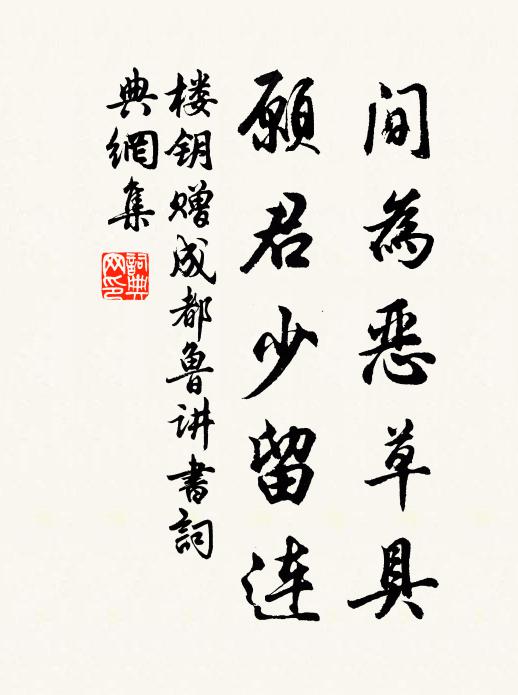 间為恶草具
願君少留连
楼钥赠成都鲁讲書詞
典網集
詞典网印